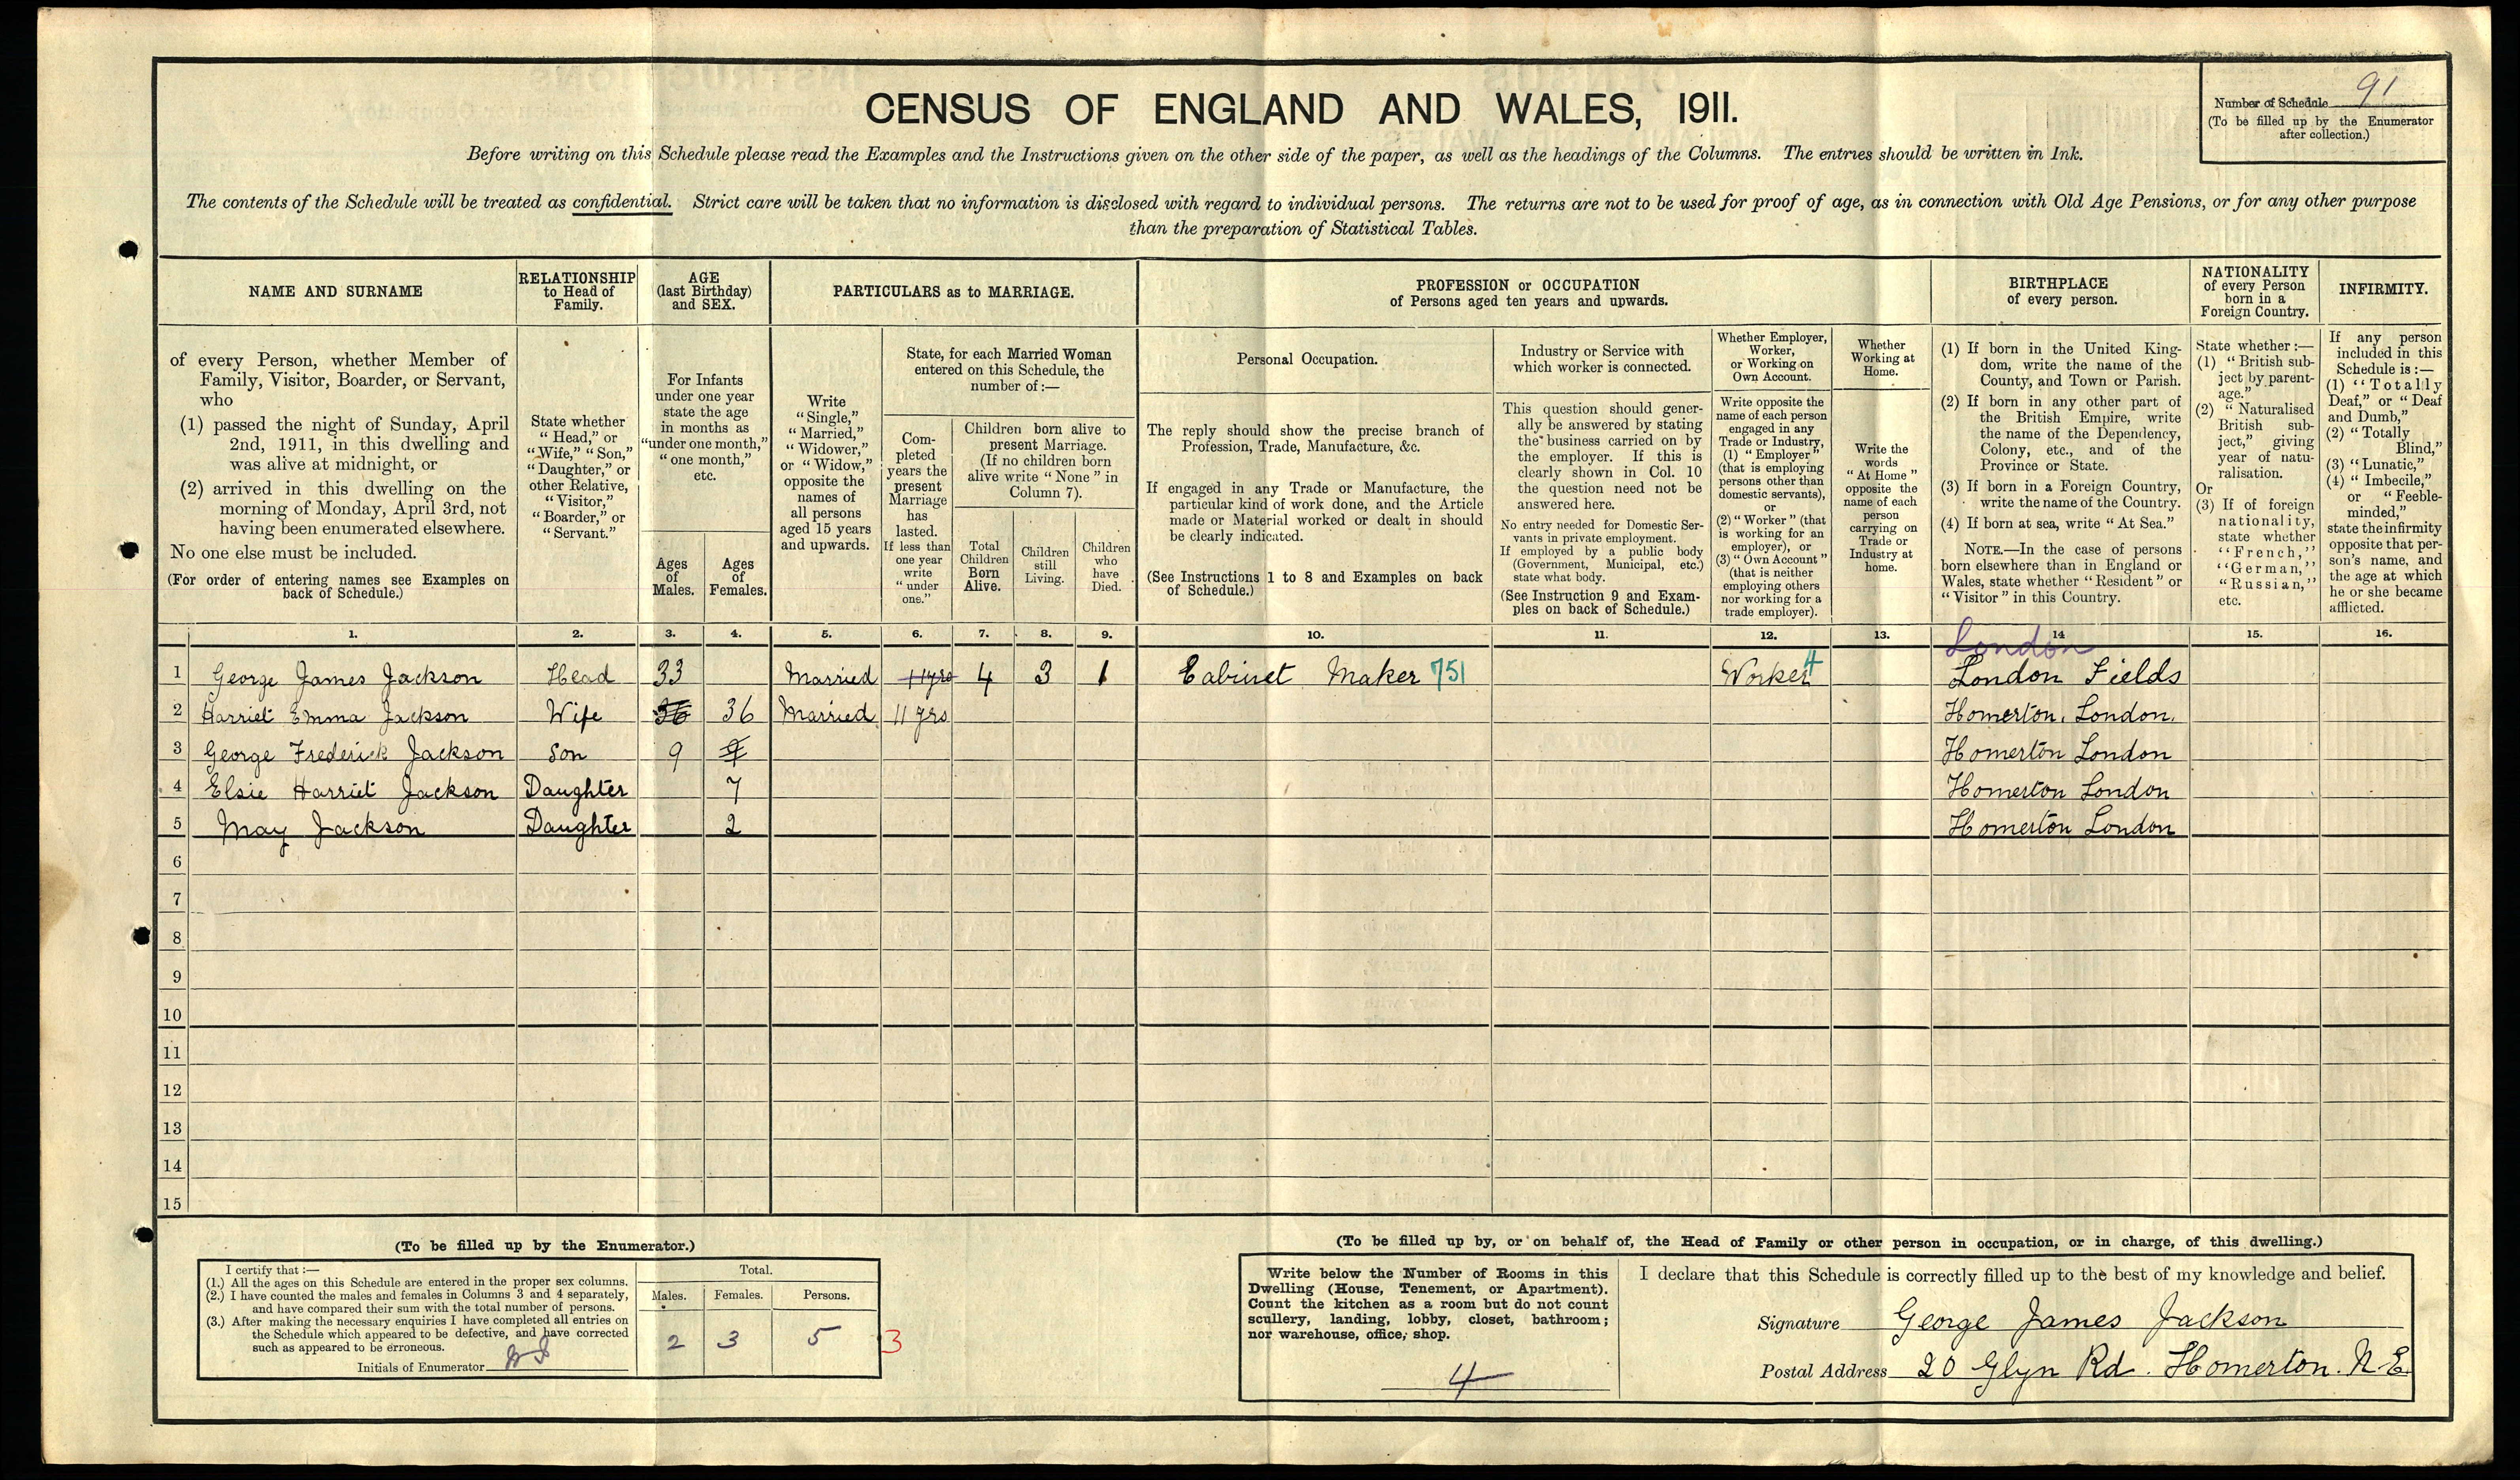 CENSUS OF ENGLAND AND WALES, 1911.
Number of Schedule 91
(To be filled up by the Enumerator
after collection.)
Before writing on this Schedule please read the Examples and the Instructions given on the other side of the paper, as well as the headings of the Columns. The entries should be written in Ink.
The contents of the Schedule will be treated as confidential. Strict care will be taken that no information is disclosed with regard to individual persons. The returns are not to be used for proof of age, as in connection with Old Age Pensions, or for any other purpose
than the preparation of Statistical Tables.
NAME AND SURNAME
of every Person, whether Member of
Family, Visitor, Boarder, or Servant,
who
(1) passed the night of Sunday, April
2nd, 1911, in this dwelling and
was alive at midnight, or
(2) arrived in this dwelling on the
morning of Monday, April 3rd, not
having been enumerated elsewhere.
No one else must be included.
(For order of entering names see Examples on
back of Schedule.)
RELATIONSHIP
to Head of
Family.
State whether
"Head," or
"Wife," "Son,"
"Daughter," or
other Relative,
"Visitor,"
"Boarder," or
"Servant."
AGE
(last Birthday)
and SEX.
For Infants
under one year
state the age
in months as
"under one month,"
"one month,"
etc.
Ages
of
Males.
Ages
of
Females.
PARTICULARS as to MARRIAGE.
Write
"Single,"
"Married,"
"Widower,"
or "Widow,"
opposite the
names of
all persons
aged 15 years
and upwards.
State, for each Married Woman
entered on this Schedule, the
number of:—
Com-
pleted
years the
present
Marriage
has
lasted.
If less than
one year
write
"under
one."
Children born alive to
present Marriage.
(If no children born
alive write "None" in
Column 7).
Total
Children
Born
Alive.
Children
still
Living.
Children
who
have
Died.
PROFESSION or OCCUPATION
of Persons aged ten years and upwards.
Personal Occupation.
The reply should show the precise branch of
Profession, Trade, Manufacture, &c.
If engaged in any Trade or Manufacture, the
particular kind of work done, and the Article
made or Material worked or dealt in should
be clearly indicated.
(See Instructions 1 to 8 and Examples on back
of Schedule.)
Industry or Service with
which worker is connected.
This question should gener-
ally be answered by stating
the business carried on by
the employer. If this is
clearly shown in Col. 10
the question need not be
answered here.
No entry needed for Domestic Ser-
vants in private employment.
If employed by a public body
(Government, Municipal, etc.)
state what body.
(See Instruction 9 and Exam-
ples on back of Schedule.)
Whether Employer,
Worker,
or Working on
Own Account.
Write opposite the
name of each person
engaged in any
Trade or Industry,
(1) "Employer"
(that is employing
persons other than
domestic servants),
or
(2) "Worker" (that
is working for an
employer), or
(3) "Own Account"
(that is neither
employing others
nor working for a
trade employer).
Whether
Working at
Home.
Write the
words
"At Home"
opposite the
name of each
person
carrying on
Trade or
Industry at
home.
BIRTHPLACE
of every person.
(1) If born in the United King-
dom, write the name of the
County, and Town or Parish.
(2) If born in any other part of
the British Empire, write
the name of the Dependency,
Colony, etc., and of the
Province or State.
(3) If born in a Foreign Country,
write the name of the Country.
(4) If born at sea, write "At Sea."
NOTE.—In the case of persons
born elsewhere than in England or
Wales, state whether "Resident" or
"Visitor" in this Country.
NATIONALITY
of every Person
born in a
Foreign Country.
State whether:—
(1) "British sub-
ject by parent-
age."
(2) "Naturalised
British sub-
ject," giving
year of natu-
ralisation.
Or
(3) If of foreign
nationality,
state whether
"French,"
"German,"
"Russian,"
etc.
INFIRMITY.
If any person
included in this
Schedule is:—
(1) "Totally
Deaf," or "Deaf
and Dumb,"
(2) "Totally
Blind,"
(3) "Lunatic,"
(4) "Imbecile,"
or "Feeble-
minded,"
state the infirmity
opposite that per-
son's name, and
the age at which
he or she became
afflicted.
1. 2. 3. 4. 5. 6. 7. 8. 9. 10. 11. 12. 13. 14 15. 16.
London
1 George James Jackson Head 33 Married 11yrs 4 3 1 Cabinet Maker 751 Worker 4 London Fields
2 Harriet Emma Jackson Wife 36 36 Married 11 yrs Homerton, London.
3 George Frederick Jackson Son 9 9 Homerton London
4 Elsie Harriet Jackson Daughter 7 Homerton London
5 May Jackson Daughter 2 Homerton London
6
7
8
9
10
11
12
13
14
15
(To be filled up by the Enumerator.)
I certify that:—
(1.) All the ages on this Schedule are entered in the proper sex columns.
(2.) I have counted the males and females in Columns 3 and 4 separately,
and have compared their sum with the total number of persons.
(3.) After making the necessary enquiries I have completed all entries on
the Schedule which appeared to be defective, and have corrected
such as appeared to be erroneous.
Initials of Enumerator
Total.
Males. Females. Persons.
2 3 5 3
(To be filled up by, or on behalf of, the Head of Family or other person in occupation, or in charge, of this dwelling.)
Write below the Number of Rooms in this
Dwelling (House, Tenement, or Apartment).
Count the kitchen as a room but do not count
scullery, landing, lobby, closet, bathroom;
nor warehouse, office, shop.
4
I declare that this Schedule is correctly filled up to the best of my knowledge and belief.
Signature George James Jackson
Postal Address 20 Glyn Rd. Homerton. N.E.